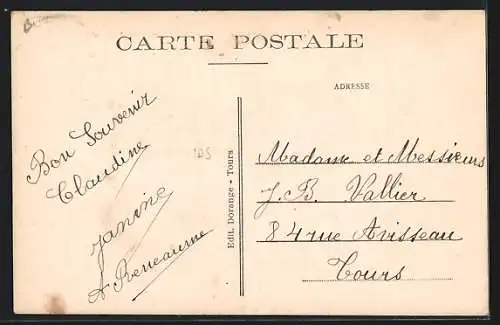 CARTE POSTALE
ADRESSE
Bon Souvenir
Claudine
Janine
Reneaume
Edit. Dorange - Tours
Madame et Messieurs
J. B. Vallier
84 rue Avisseau
Tours